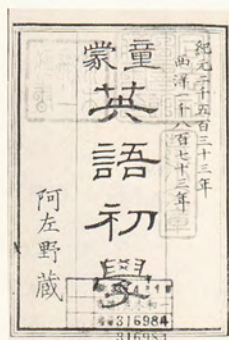 紀元二千五百三十三年
西洋一千八百七十三年
童蒙
英語初學
阿左野蔵
316984
316984